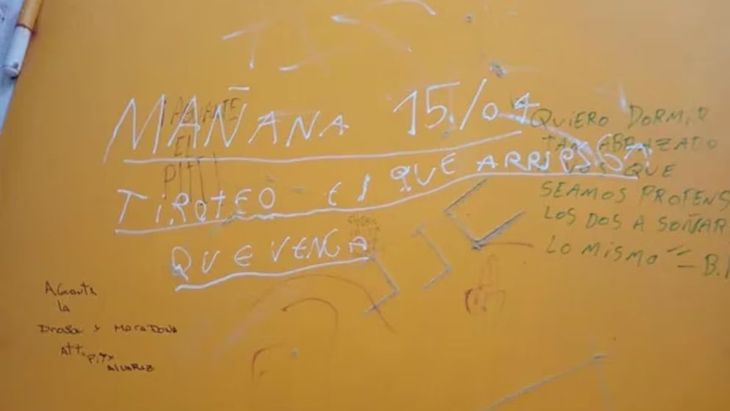 MAÑANA 15/04
TIROTEO EL QUE ARRIESGA
QUE VENGA
AGUANTE
EL
QUIERO DORMIR
TAN ABRAZADO
QUE
SEAMOS PROPENS
LOS DOS A SOÑAR
LO MISMO" - B.
AGUANTE
LA
Droga y MaraDona
ATT.
ALVAREZ